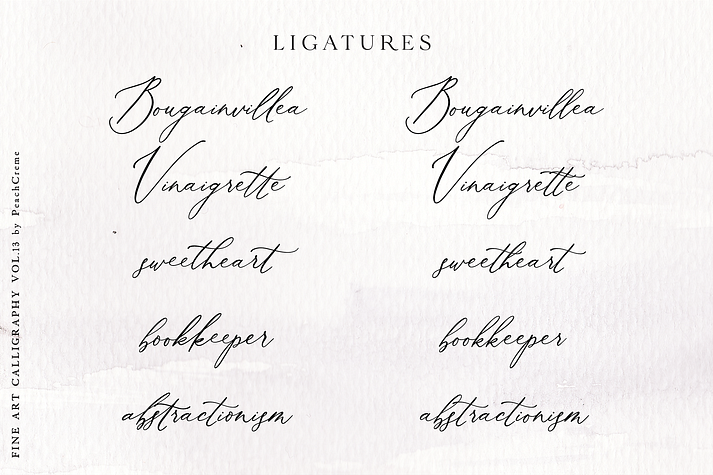 LIGATURES
Bougainvillea Bougainvillea
Vinaigrette Vinaigrette
sweetheart sweetheart
bookkeeper bookkeeper
abstractionism abstractionism
FINE ART CALLIGRAPHY VOL.13 by PeachCreme